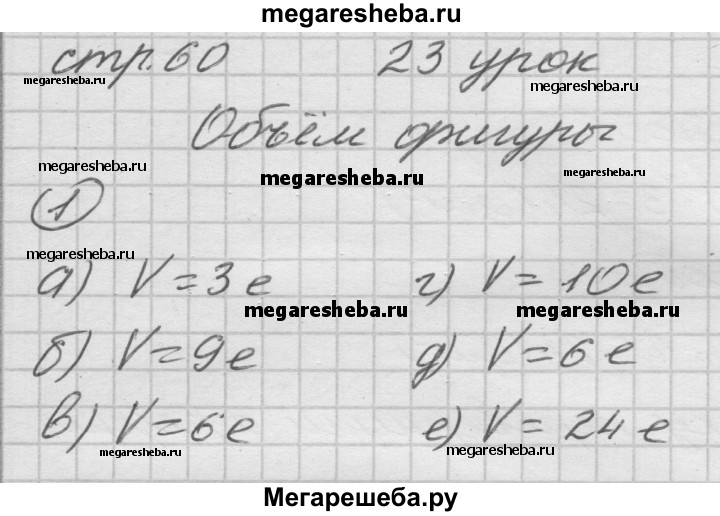 megaresheba.ru
стр. 60 23 урок
megaresheba.ru megaresheba.ru
Объём фигуры
megaresheba.ru megaresheba.ru megaresheba.ru
1
megaresheba.ru
а) V = 3 е г) V = 10 е
megaresheba.ru megaresheba.ru
б) V = 9 е д) V = 6 е
в) V = 6 е е) V = 24 е
megaresheba.ru megaresheba.ru
Мегарешеба.ру